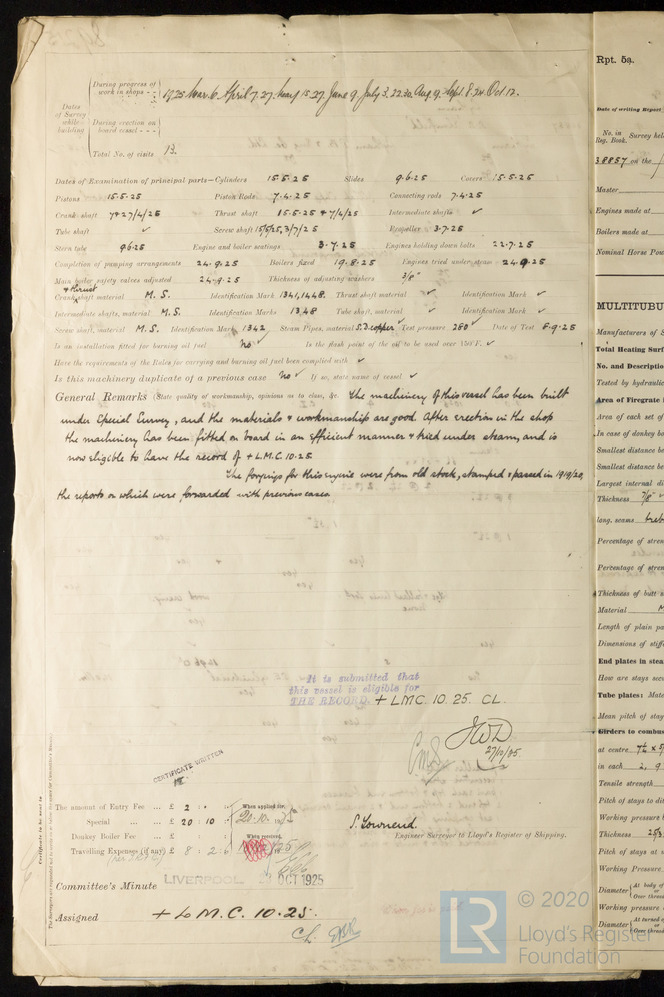 Dates of Survey while building
During progress of work in shops - - 1925 Mar. 6. April 7. 27. May 15. 27. June 9. July 3. 22. 30. Aug 9. Sept 8. 24. Oct 12.
During erection on board vessel - - -
Total No. of visits 13.
Dates of Examination of principal parts—Cylinders 15.5.25 Slides 9.6.25 Covers 15.5.25
Pistons 15.5.25 Piston Rods 7.4.25 Connecting rods 7.4.25
Crank shaft 7 & 27/4/25 Thrust shaft 15.5.25 & 7/4/25 Intermediate shafts ✓
Tube shaft ✓ Screw shaft 15/5/25, 3/7/25 Propeller 3.7.25
Stern tube 9.6.25 Engine and boiler seatings 3.7.25 Engines holding down bolts 22.7.25
Completion of pumping arrangements 24.9.25 Boilers fixed 19.8.25 Engines tried under steam 24.9.25
Main boiler safety valves adjusted 24.9.25 Thickness of adjusting washers 3/8"
Crank & thrust shaft material M.S. Identification Mark 1341,1448. Thrust shaft material ✓ Identification Mark ✓
Intermediate shafts, material M.S. Identification Marks 1348 Tube shaft, material ✓ Identification Mark ✓
Screw shaft, material M.S. Identification Mark 1342 Steam Pipes, material S.D. copper Test pressure 360 Date of Test 8-9-25
Is an installation fitted for burning oil fuel no ✓ Is the flash point of the oil to be used over 150°F. ✓
Have the requirements of the Rules for carrying and burning oil fuel been complied with ✓
Is this machinery duplicate of a previous case No ✓ If so, state name of vessel ✓
General Remarks (State quality of workmanship, opinions as to class, &c. The machinery of this vessel has been built
under Special Survey, and the materials & workmanship are good. After erection in the shop
the machinery has been fitted on board in an efficient manner & tried under steam, and is
now eligible to have the record of + L.M.C. 10.25
The forgings for this engine were from old stock, stamped & passed in 1919/20,
the reports on which were forwarded with previous cases.
It is submitted that
this vessel is eligible for
THE RECORD. + LMC. 10. 25. CL.
JWD
27/10/25.
CERTIFICATE WRITTEN
The amount of Entry Fee ... £ 2 : - : When applied for,
Special ... £ 20 : 10 : 20.10.1925
Donkey Boiler Fee ... £ : : When received,
Travelling Expenses (if any) £ 8 : 2 : 6
S. Townend.
Engineer Surveyor to Lloyd's Register of Shipping.
Committee's Minute LIVERPOOL OCT 1925
Assigned + L.M.C. 10.25.
Certificate to be sent to
Rpt. 5a.
Date of writing Report
No. in Reg. Book. Survey held
38857 on the
Master
Engines made at
Boilers made at
Nominal Horse Pow
MULTITUBU
Manufacturers of S
Total Heating Surf
No. and Descriptio
Tested by hydraulic
Area of Firegrate i
Area of each set of
In case of donkey bo
Smallest distance be
Smallest distance be
Largest internal di
Thickness 7/8"
long. seams
Percentage of stren
Percentage of stren
Thickness of butt s
Material M
Length of plain pa
Dimensions of stiff
End plates in stea
How are stays sec
Tube plates: Mate
Mean pitch of stay
Girders to combus
at centre
in each 2, 9
Tensile strength
Pitch of stays to di
Working pressure b
Thickness 25/3
Pitch of stays at
Working Pressure
Diameter At body of Over threa
Working pressure
Diameter At turned o Over threa
© 2020
Lloyd's Register
Foundation
LR